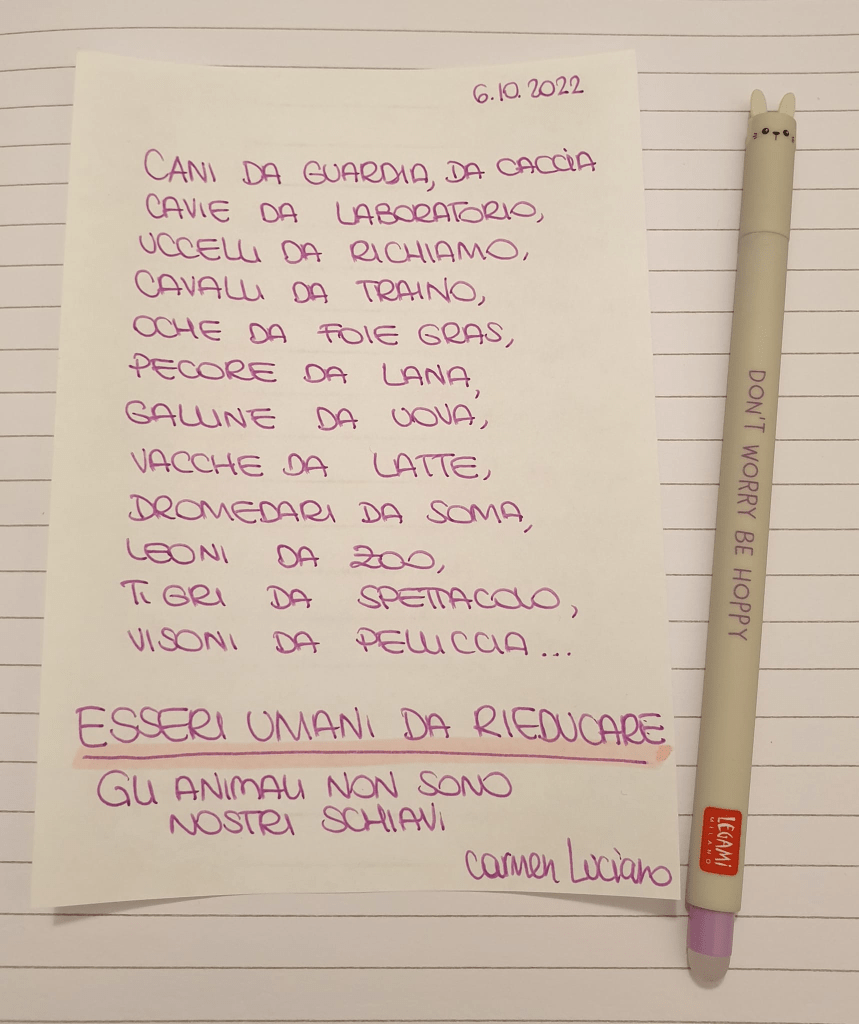 6.10.2022
CANI DA GUARDIA, DA CACCIA
CAVIE DA LABORATORIO,
UCCELLI DA RICHIAMO,
CAVALLI DA TRAINO,
OCHE DA FOIE GRAS,
PECORE DA LANA,
GALLINE DA UOVA,
VACCHE DA LATTE,
DROMEDARI DA SOMA,
LEONI DA ZOO,
TIGRI DA SPETTACOLO,
VISONI DA PELLICCIA...
ESSERI UMANI DA RIEDUCARE
GLI ANIMALI NON SONO
NOSTRI SCHIAVI
Carmen Luciano
DON'T WORRY BE HOPPY
LEGAMI
MILANO